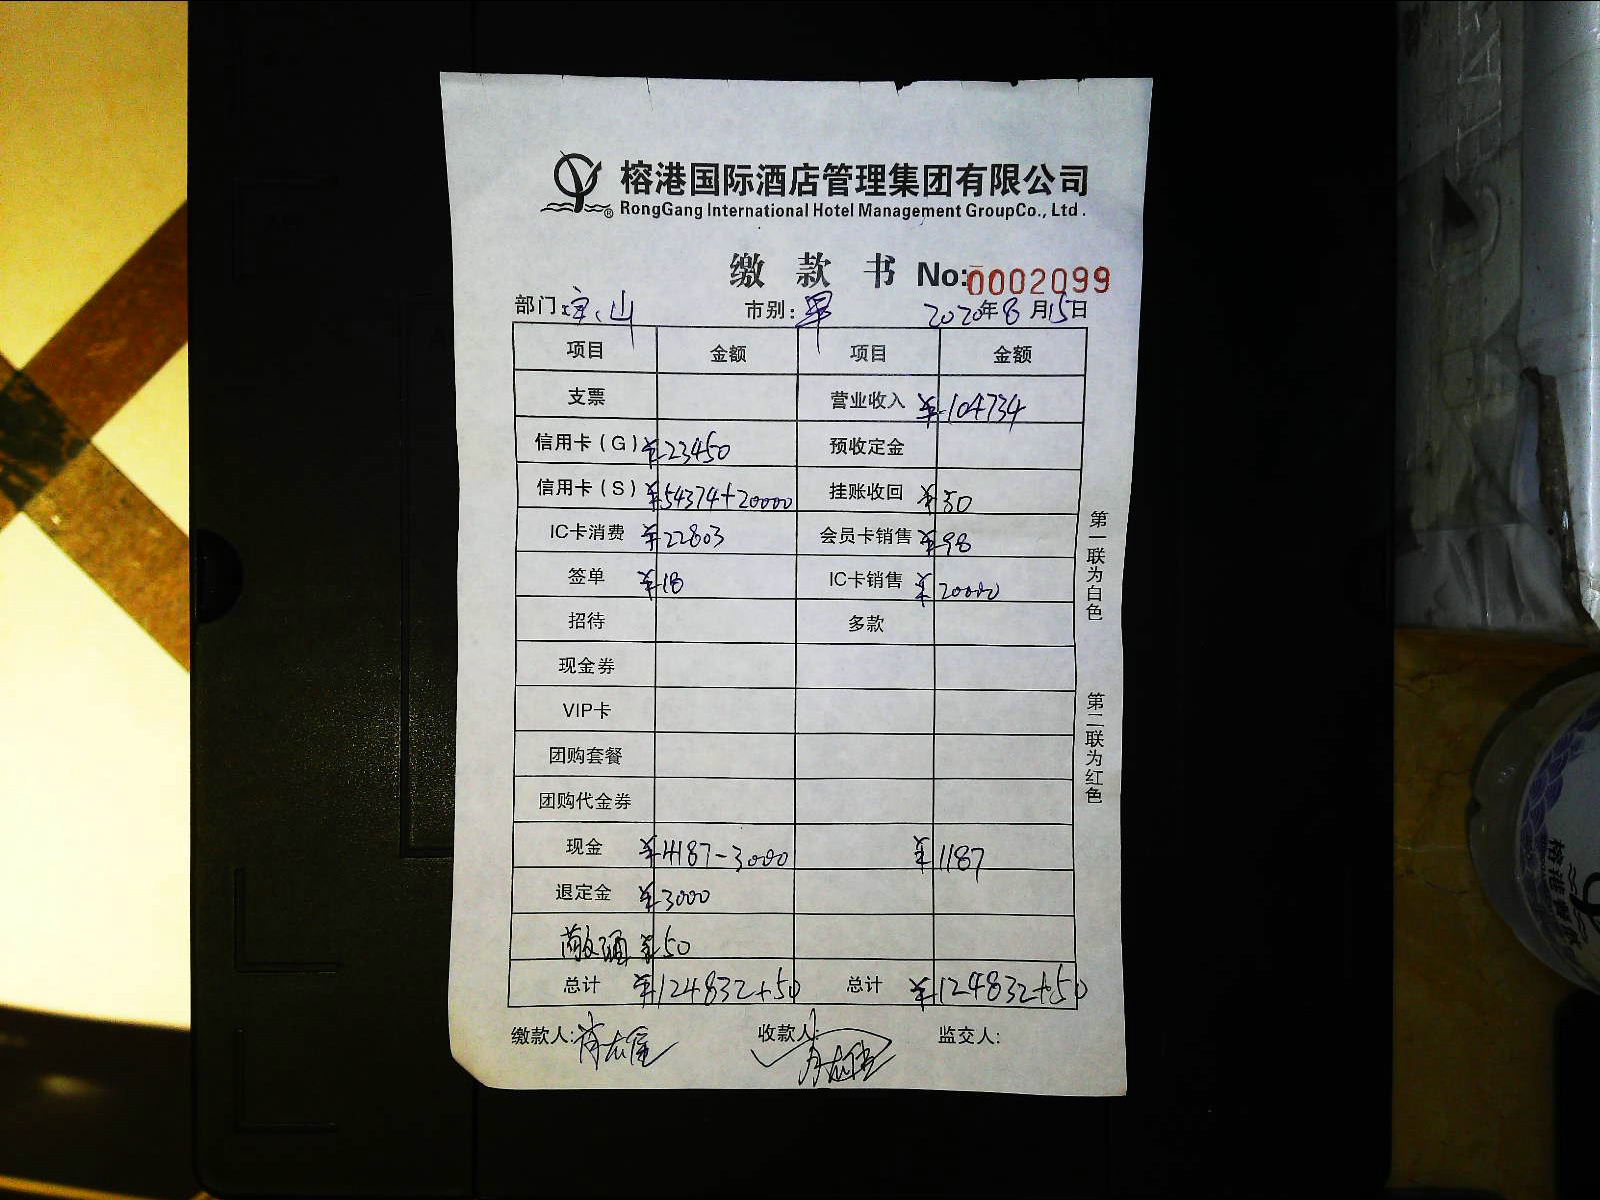 榕港国际酒店管理集团有限公司
RongGang International Hotel Management GroupCo., Ltd.
缴款书 No:0002099
部门:宝山 市别:早 2020年8月15日
项目 金额 项目 金额
支票 营业收入 ¥104734
信用卡(G) ¥23450 预收定金
信用卡(S) ¥54374+20000 挂账收回 ¥50
IC卡消费 ¥22803 会员卡销售 ¥98
签单 ¥18 IC卡销售 ¥20000
招待 多款
现金券
VIP卡
团购套餐
团购代金券
现金 ¥4187-3000 ¥1187
退定金 ¥3000
酒 ¥50
总计 ¥124832+50 总计 ¥124832+50
缴款人: 收款人: 监交人:
第一联为白色
第二联为红色